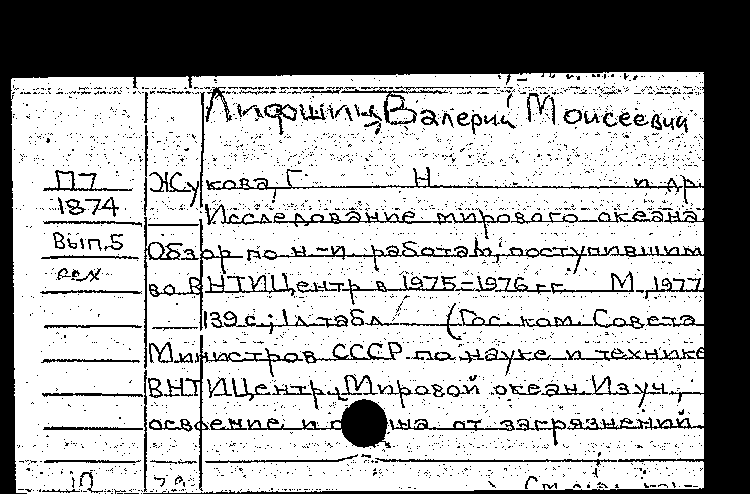 Лифшиц, Валерий Моисеевич
П7
1874
Вып.5
рех
Жукова, Г Н и др.
Исследование мирового океана
Обзор по н-и. работам, поступившим
во ВНТИЦентр в 1975-1976 гг. М., 1977
139 с.; 1 л. табл. (Гос. ком. Совета
Министров СССР по науке и технике
ВНТИЦентр. Мировой океан. Изуч.,
освоение и от загрязнений
10